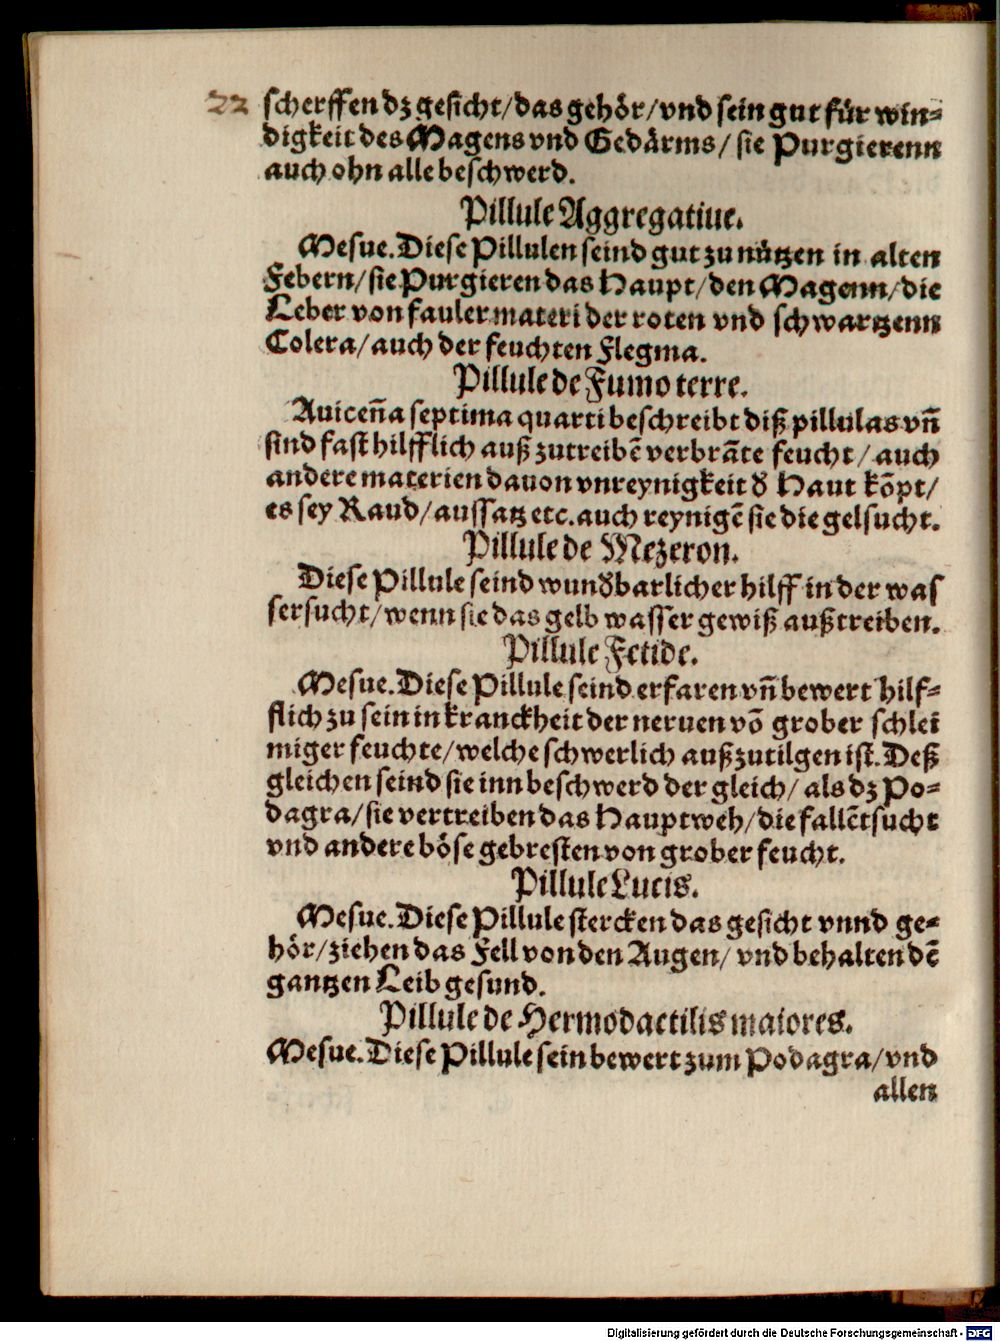 22 scherffen dz gesicht/das gehör/vnd sein gut für win-
digkeit des Magens vnd Gedärms/ sie Purgierenn
auch ohn alle beschwerd.
Pillule Aggregatiue.
Mesue. Diese Pillulen seind gut zu nützen in alten
Febern/sie Purgieren das Haupt/den Magenn/die
Leber von fauler materi der roten vnd schwartzenn
Colera/auch der feuchten Flegma.
Pillule de Fumo terre.
Auiceña septima quarti beschreibt diß pillulas vñ
sind fast hilfflich auß zutreibẽ verbrãte feucht/auch
andere materien dauon vnreynigkeit d̕ Haut kõpt/
es sey Raud/aussatz etc. auch reynigẽ sie die gelsucht.
Pillule de Mezeron.
Diese Pillule seind wund̕barlicher hilff in der was
sersucht/wenn sie das gelb wasser gewiß außtreiben.
Pillule Fetide.
Mesue. Diese Pillule seind erfaren vñ bewert hilf-
flich zu sein in kranckheit der neruen võ grober schlei
miger feuchte/welche schwerlich auß zutilgen ist. Deß
gleichen seind sie inn beschwerd der gleich/ als dz Po-
dagra/sie vertreiben das Hauptweh/die fallẽtsucht
vnd andere böse gebresten von grober feucht.
Pillule Lucis.
Mesue. Diese Pillule stercken das gesicht vnnd ge-
hör/ziehen das Fell von den Augen/ vnd behalten dẽ
gantzen Leib gesund.
Pillule de Hermodactilis maiores.
Mesue. Diese Pillule sein bewert zum Podagra/vnd
allen
Digitalisierung gefördert durch die Deutsche Forschungsgemeinschaft - DFG